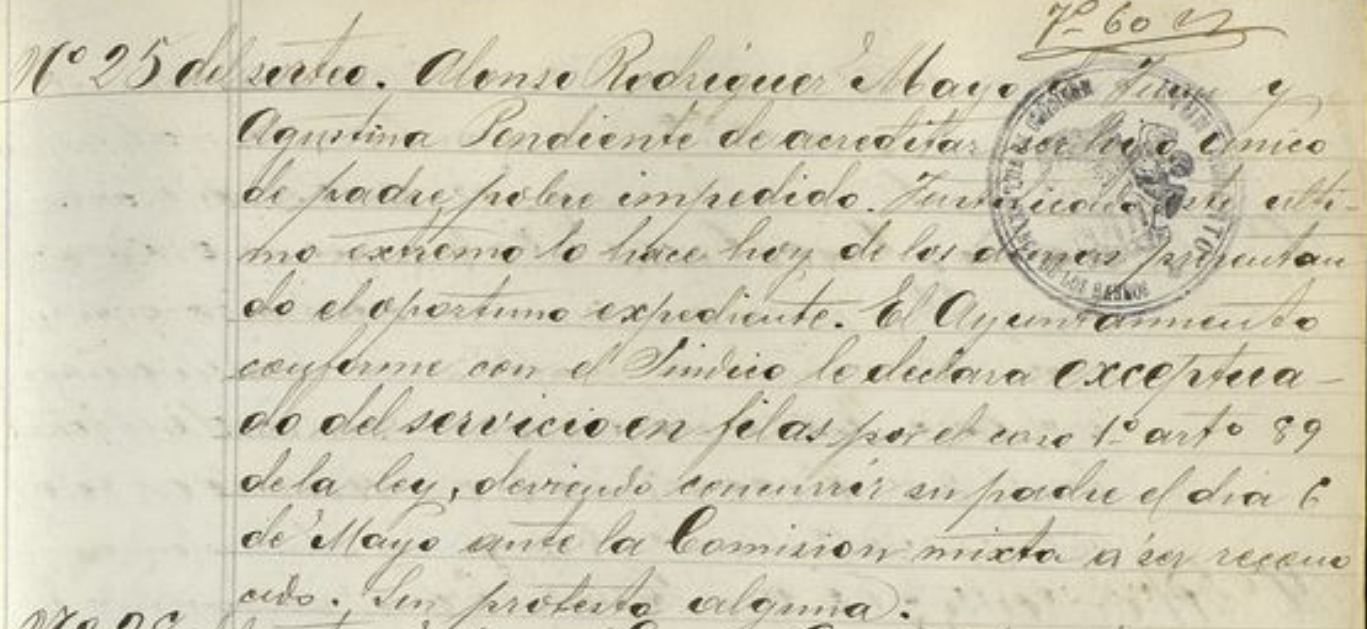 7º 60
Nº 25 del sorteo. Alonso Rodriguez Mayo de Juan y
Agustina Pendiente de acreditar ser hijo único
de padre pobre impedido. Justificado este ulti-
mo extremo lo hace hoy de los demas presentan
do el oportuno expediente. El Ayuntamiento
conforme con el Sindico lo declara exceptua-
do del servicio en filas por el caso 1º artº 89
de la ley, deviendo concurrir su padre el dia 6
de Mayo ante la Comision mixta a ser recono
cido. Sin protesta alguna.